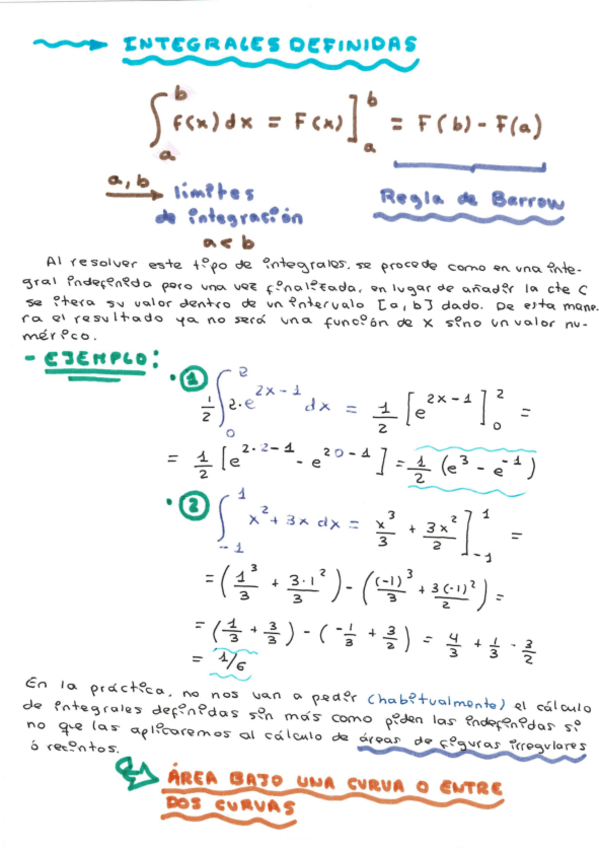 INTEGRALES DEFINIDAS
∫ₐᵇ f(x) dx = F(x)]ₐᵇ = F(b) - F(a)
a, b → limites de integración a < b
Regla de Barrow
Al resolver este tipo de integrales, se procede como en una inte-
gral indefinida pero una vez finalizada, en lugar de añadir la cte C
se itera su valor dentro de un intervalo [a, b] dado. De esta mane-
ra el resultado ya no será una función de x sino un valor nu-
mérico.
- EJEMPLO:
· ① 1/2 ∫₀² 2·e^(2x-1) dx = 1/2 [e^(2x-1)]₀² =
= 1/2 [e^(2·2-1) - e^(20-1)] = 1/2 (e³ - e⁻¹)
· ② ∫₋₁¹ x² + 3x dx = x³/3 + 3x²/2]₋₁¹ =
= (1³/3 + 3·1²/3) - ((-1)³/3 + 3(-1)²/2) =
= (1/3 + 3/3) - (-1/3 + 3/2) = 4/3 + 1/3 - 3/2
= 1/6
En la práctica, no nos van a pedir (habitualmente) el cálculo
de integrales definidas sin más como piden las indefinidas si
no que las aplicaremos al cálculo de áreas de figuras irregulares
ó recintos.
ÁREA BAJO UNA CURVA O ENTRE
DOS CURVAS